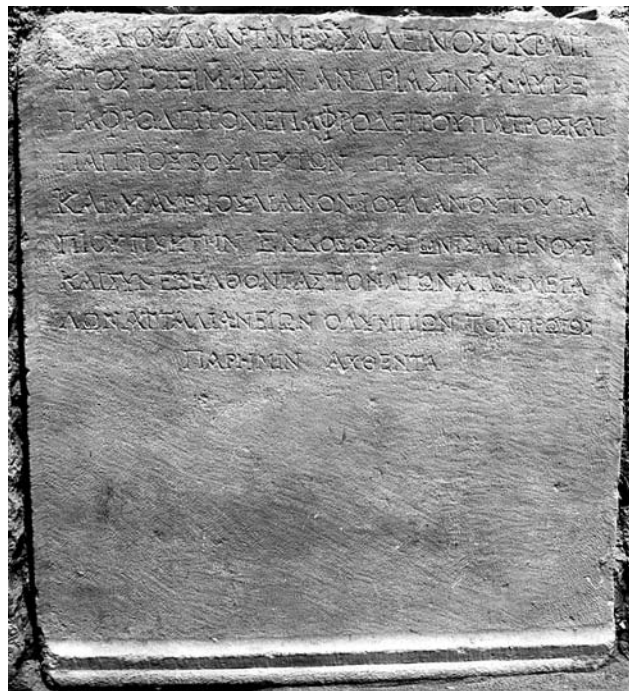 ΙΟΥΛ ΑΝΤ ΜΕΣΣΑΛΕΙΝΟΣ Ο ΚΡΑΤΙ
ΣΤΟΣ ΕΤΕΙΜΗΣΕΝ ΑΝΔΡΙΑΣΙΝ Μ ΑΥΡ Ε
ΠΑΦΡΟΔΕΙΤΟΝ ΕΠΑΦΡΟΔΕΙΤΟΥ ΠΑΤΡΟΣ ΚΑΙ
ΠΑΠΠΟΥ ΒΟΥΛΕΥΤΩΝ ΠΥΚΤΗΝ
ΚΑΙ Μ ΑΥΡ ΙΟΥΛΙΑΝΟΝ ΙΟΥΛΙΑΝΟΥ ΤΟΥ ΠΑ
ΠΙΟΥ ΠΥΚΤΗΝ ΕΝΔΟΞΩΣ ΑΓΩΝΙΣΑΜΕΝΟΥΣ
ΚΑΙ ΣΥΝΕΞΕΛΘΟΝΤΑΣ ΤΟΝ ΑΓΩΝΑ ΤΩΝ ΜΕΓΑ
ΛΩΝ ΑΤΤΑΛΙΑΝΕΙΩΝ ΟΛΥΜΠΙΩΝ ΤΟΝ ΠΡΩΤΩΣ
ΠΑΡ ΗΜΙΝ ΑΧΘΕΝΤΑ